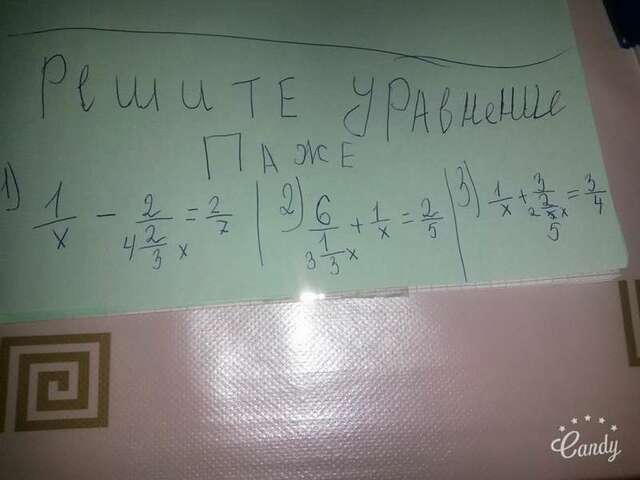 Решите уравнение
ПАЖЕ
1) 1/x - 2/(4 2/3 x) = 2/7 | 2) 6/(3 1/3 x) + 1/x = 2/5 | 3) 1/x + 3/(2 2/5 x) = 3/4
Candy